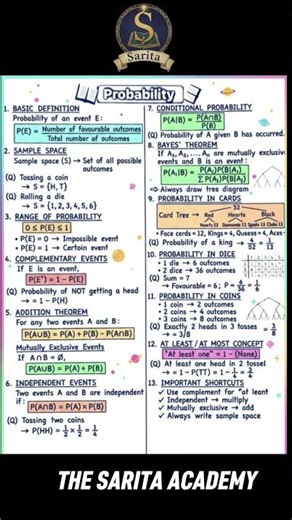 S
Sarita
Probability
1. BASIC DEFINITION
Probability of an event E:
P(E) = Number of favourable outcomes
Total number of outcomes
2. SAMPLE SPACE
Sample space (S) → Set of all possible
outcomes
(Q) Tossing a coin
→ S = {H, T}
(Q) Rolling a die
→ S = {1, 2, 3, 4, 5, 6}
3. RANGE OF PROBABILITY
0 ≤ P(E) ≤ 1
• P(E) = 0 → Impossible event
• P(E) = 1 → Certain event
4. COMPLEMENTARY EVENTS
If E is an event,
P(E') = 1 - P(E)
(Q) Probability of NOT getting a head
→ = 1 - P(H)
5. ADDITION THEOREM
For any two events A and B:
P(A∪B) = P(A) + P(B) - P(A∩B)
Mutually Exclusive Events
If A∩B = Ø,
P(A∪B) = P(A) + P(B)
6. INDEPENDENT EVENTS
Two events A and B are independent
if:
P(A∩B) = P(A) × P(B)
(Q) Tossing two coins
→ P(HH) = 1/2 × 1/2 = 1/4
7. CONDITIONAL PROBABILITY
P(A|B) = P(A∩B)
P(B)
(Q) Probability of A given B has occurred.
8. BAYES' THEOREM
If A₁, A₂, ..., Aₙ are mutually exclusive
events and B is an event:
P(Aᵢ|B) = P(Aᵢ)P(B|Aᵢ)
∑P(Aᵢ)P(B|Aᵢ)
⇒ Always draw tres diagram
9. PROBABILITY IN CARDS
52
Card Tree → Red Hearts Black
Hearts 13 Diamonds 13 Spade 13 Clubs 13
• Face cerds = 12, Kings = 4, Queses = 4, Aces
Probability of a king → 4/52 = 1/13
10. PROBABILITY IN DICE
• 1 die → 6 outcomes
• 2 dice → 36 outcomes
(Q) Sum = 7
→ Fovourable = 6; P = 6/36 = 1/6
11. PROBABILITY IN COINS
• 1 coin → 2 outcomes
• 2 coins → 4 outcomes
• 3 coins → 8 outcomes
(Q) Exactly 2 heads in 3 tosses = 3/8
→ = 3/8
12. AT LEAST / AT MOST CONCEPT
"At least one" = 1 - (None)
(Q) At least one head in 2 tossel
→ = 1 - P(TT) = 1 - 1/4 = 3/4
13. IMPORTANT SHORTCUTS
✓ Use complement for "at leant
✓ Independent → multiply
✓ Mutually exclusive → add
✓ Always write sample space
THE SARITA ACADEMY